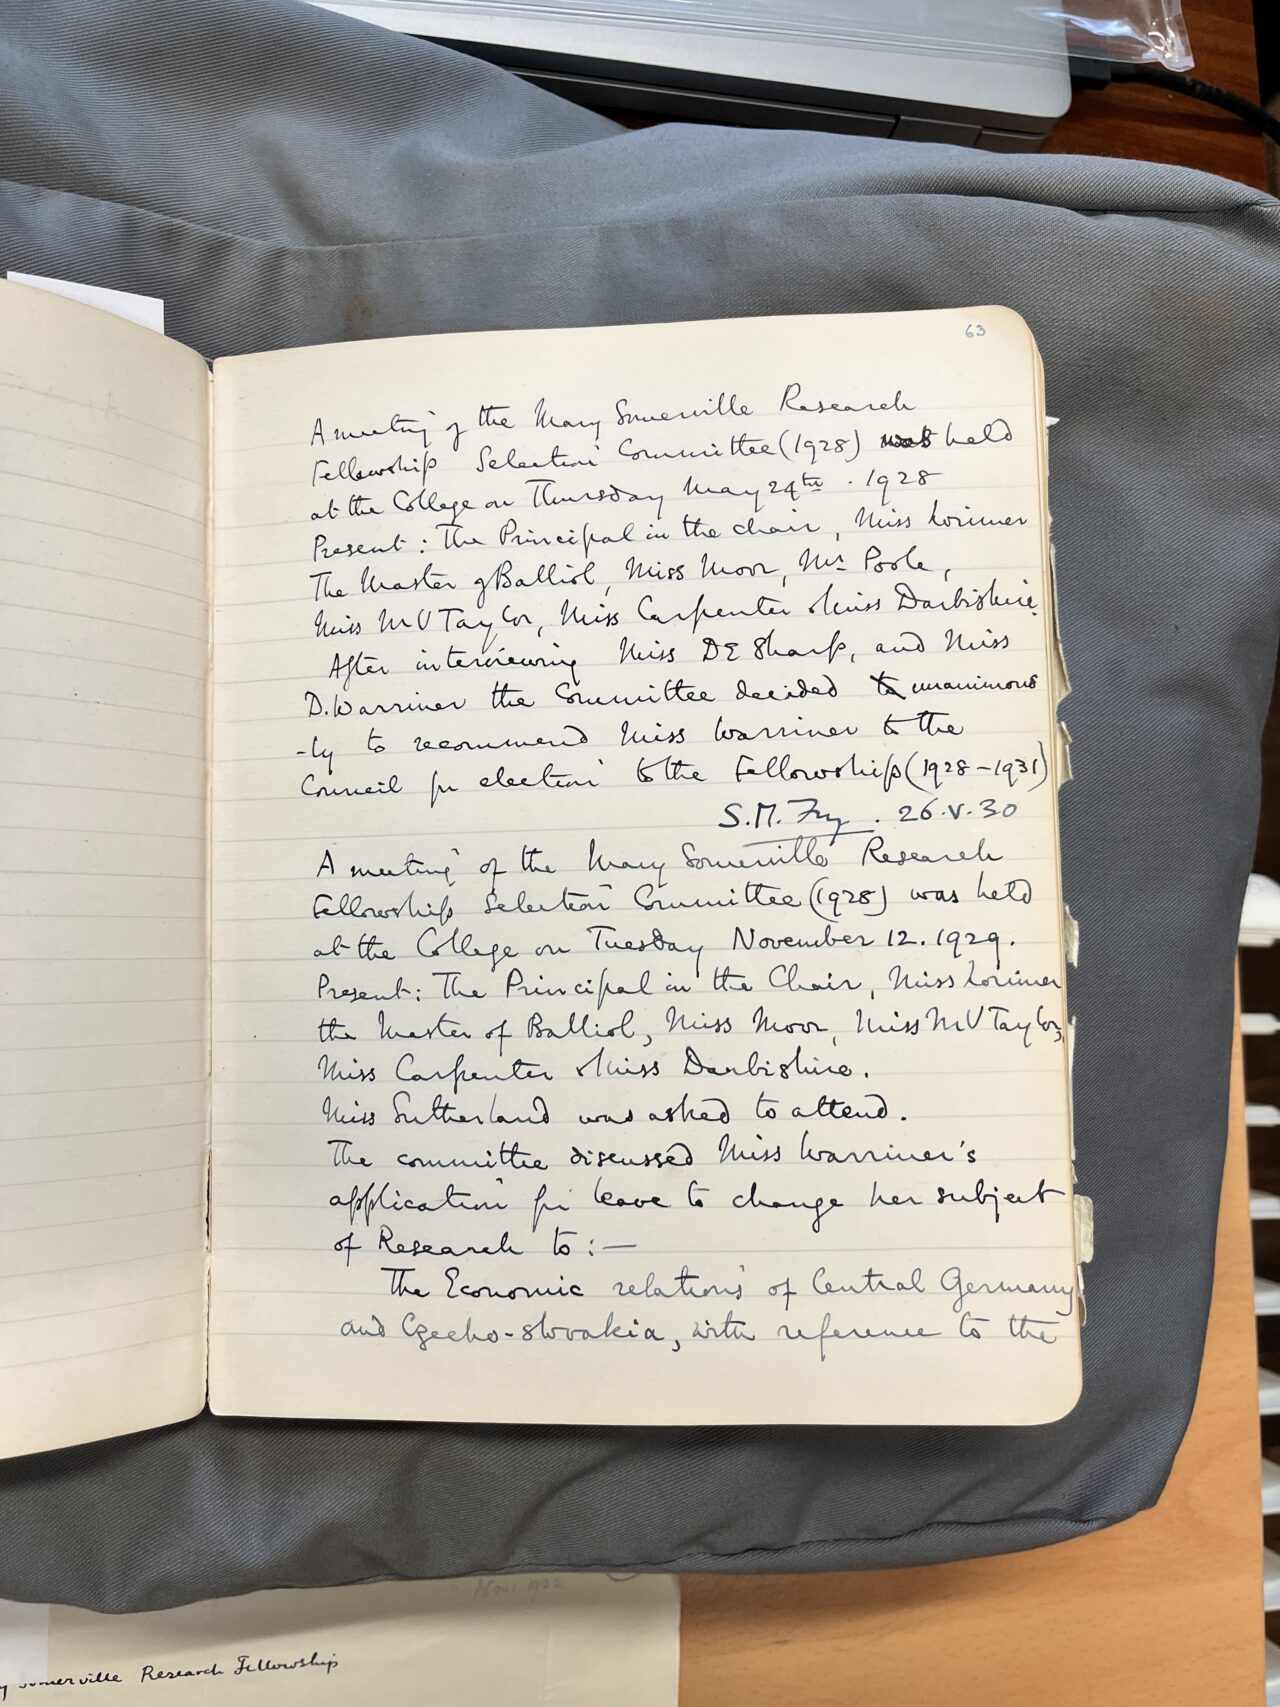 63
A meeting of the Mary Somerville Research
Fellowship Selection Committee (1928) was held
at the College on Thursday May 24th . 1928
Present : The Principal in the chair, Miss Lorimer
The Master of Balliol, Miss Moor, Mr Poole,
Miss M V Taylor, Miss Carpenter & Miss Darbishire.
After interviewing Miss D E Sharp, and Miss
D. Warriner the Committee decided to unanimous
-ly to recommend Miss Warriner to the
Council for election to the Fellowship (1928-1931)
S.M. Fry . 26.V.30
A meeting of the Mary Somerville Research
Fellowship Selection Committee (1928) was held
at the College on Tuesday November 12. 1929.
Present: The Principal in the Chair, Miss Lorimer
the Master of Balliol, Miss Moor, Miss M V Taylor,
Miss Carpenter & Miss Darbishire.
Miss Sutherland was asked to attend.
The committee discussed Miss Warriner's
application for leave to change her subject
of Research to :—
The Economic relations of Central Germany
and Czecho-slovakia, with reference to the
Somerville Research Fellowship